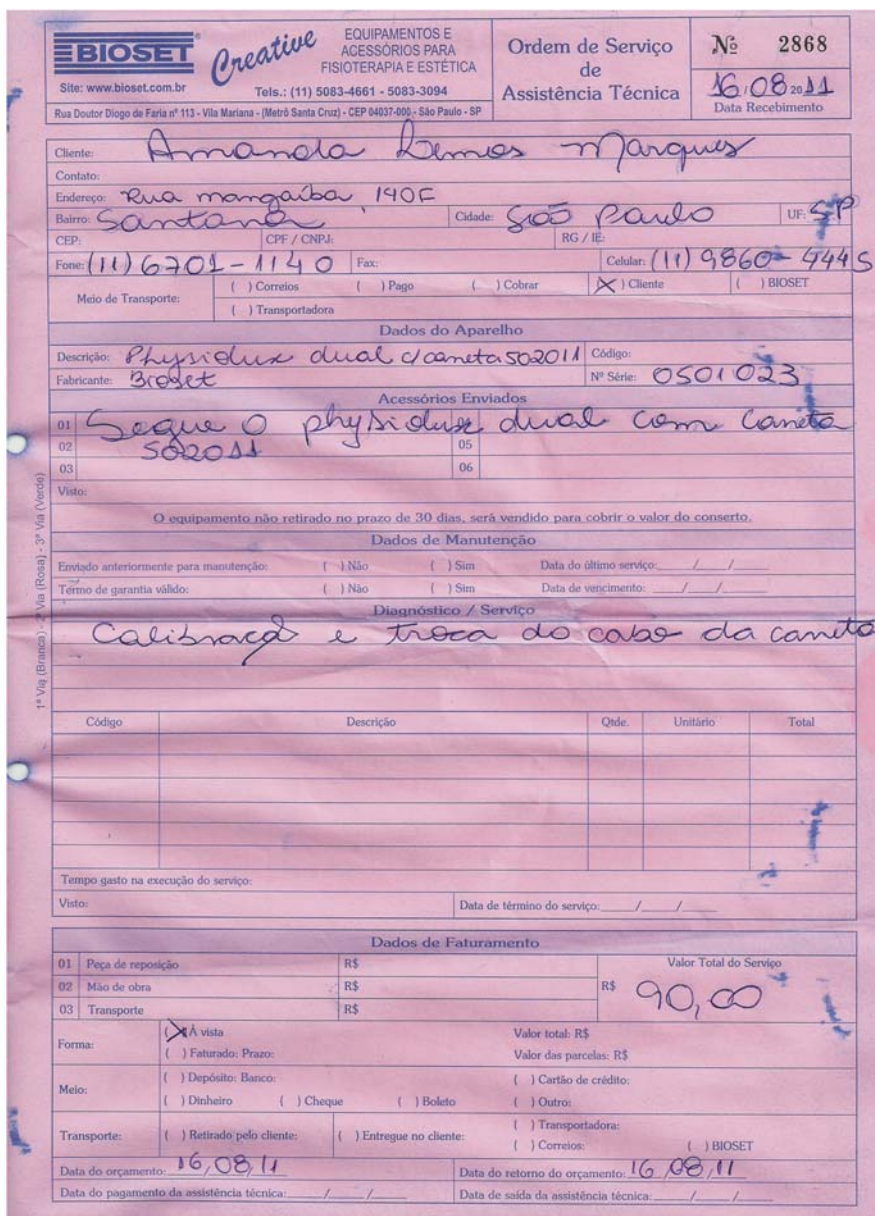 BIOSET®
Creative
EQUIPAMENTOS E
ACESSÓRIOS PARA
FISIOTERAPIA E ESTÉTICA
Site: www.bioset.com.br
Tels.: (11) 5083-4661 - 5083-3094
Rua Doutor Diogo de Faria nº 113 - Vila Mariana - (Metrô Santa Cruz) - CEP 04037-000 - São Paulo - SP
Ordem de Serviço
de
Assistência Técnica
Nº 2868
16/08 2011
Data Recebimento
Cliente: Amanda Lemos Marques
Contato:
Endereço: Rua mangaíba, 140F
Bairro: Santana Cidade: São Paulo UF: SP
CEP: CPF / CNPJ: RG / IE:
Fone: (11) 6701-1140 Fax: Celular: (11) 9860-4445
Meio de Transporte: ( ) Correios ( ) Pago ( ) Cobrar (X) Cliente ( ) BIOSET
( ) Transportadora
Dados do Aparelho
Descrição: Physiolux dual c/caneta 502011 Código:
Fabricante: Bioset Nº Série: 0501023
Acessórios Enviados
01 Segue o physiolux dual com caneta
02 502011 05
03 06
Visto:
O equipamento não retirado no prazo de 30 dias, será vendido para cobrir o valor do conserto.
Dados de Manutenção
Enviado anteriormente para manutenção: ( ) Não ( ) Sim Data do último serviço: / /
Termo de garantia válido: ( ) Não ( ) Sim Data de vencimento: / /
Diagnóstico / Serviço
Calibração e troca do cabo da caneta
Código Descrição Qtde. Unitário Total
Tempo gasto na execução do serviço:
Visto: Data de término do serviço: / /
Dados de Faturamento
01 Peça de reposição R$ Valor Total do Serviço
02 Mão de obra R$ R$ 90,00
03 Transporte R$
Forma: (X) À vista Valor total: R$
( ) Faturado: Prazo: Valor das parcelas: R$
Meio: ( ) Depósito: Banco: ( ) Cartão de crédito:
( ) Dinheiro ( ) Cheque ( ) Boleto ( ) Outro:
Transporte: ( ) Retirado pelo cliente: ( ) Entregue no cliente: ( ) Transportadora:
( ) Correios: ( ) BIOSET
Data do orçamento: 16/08/11 Data do retorno do orçamento: 16/08/11
Data do pagamento da assistência técnica: / / Data de saída da assistência técnica: / /
1ª Via (Branca) - 2ª Via (Rosa) - 3ª Via (Verde)